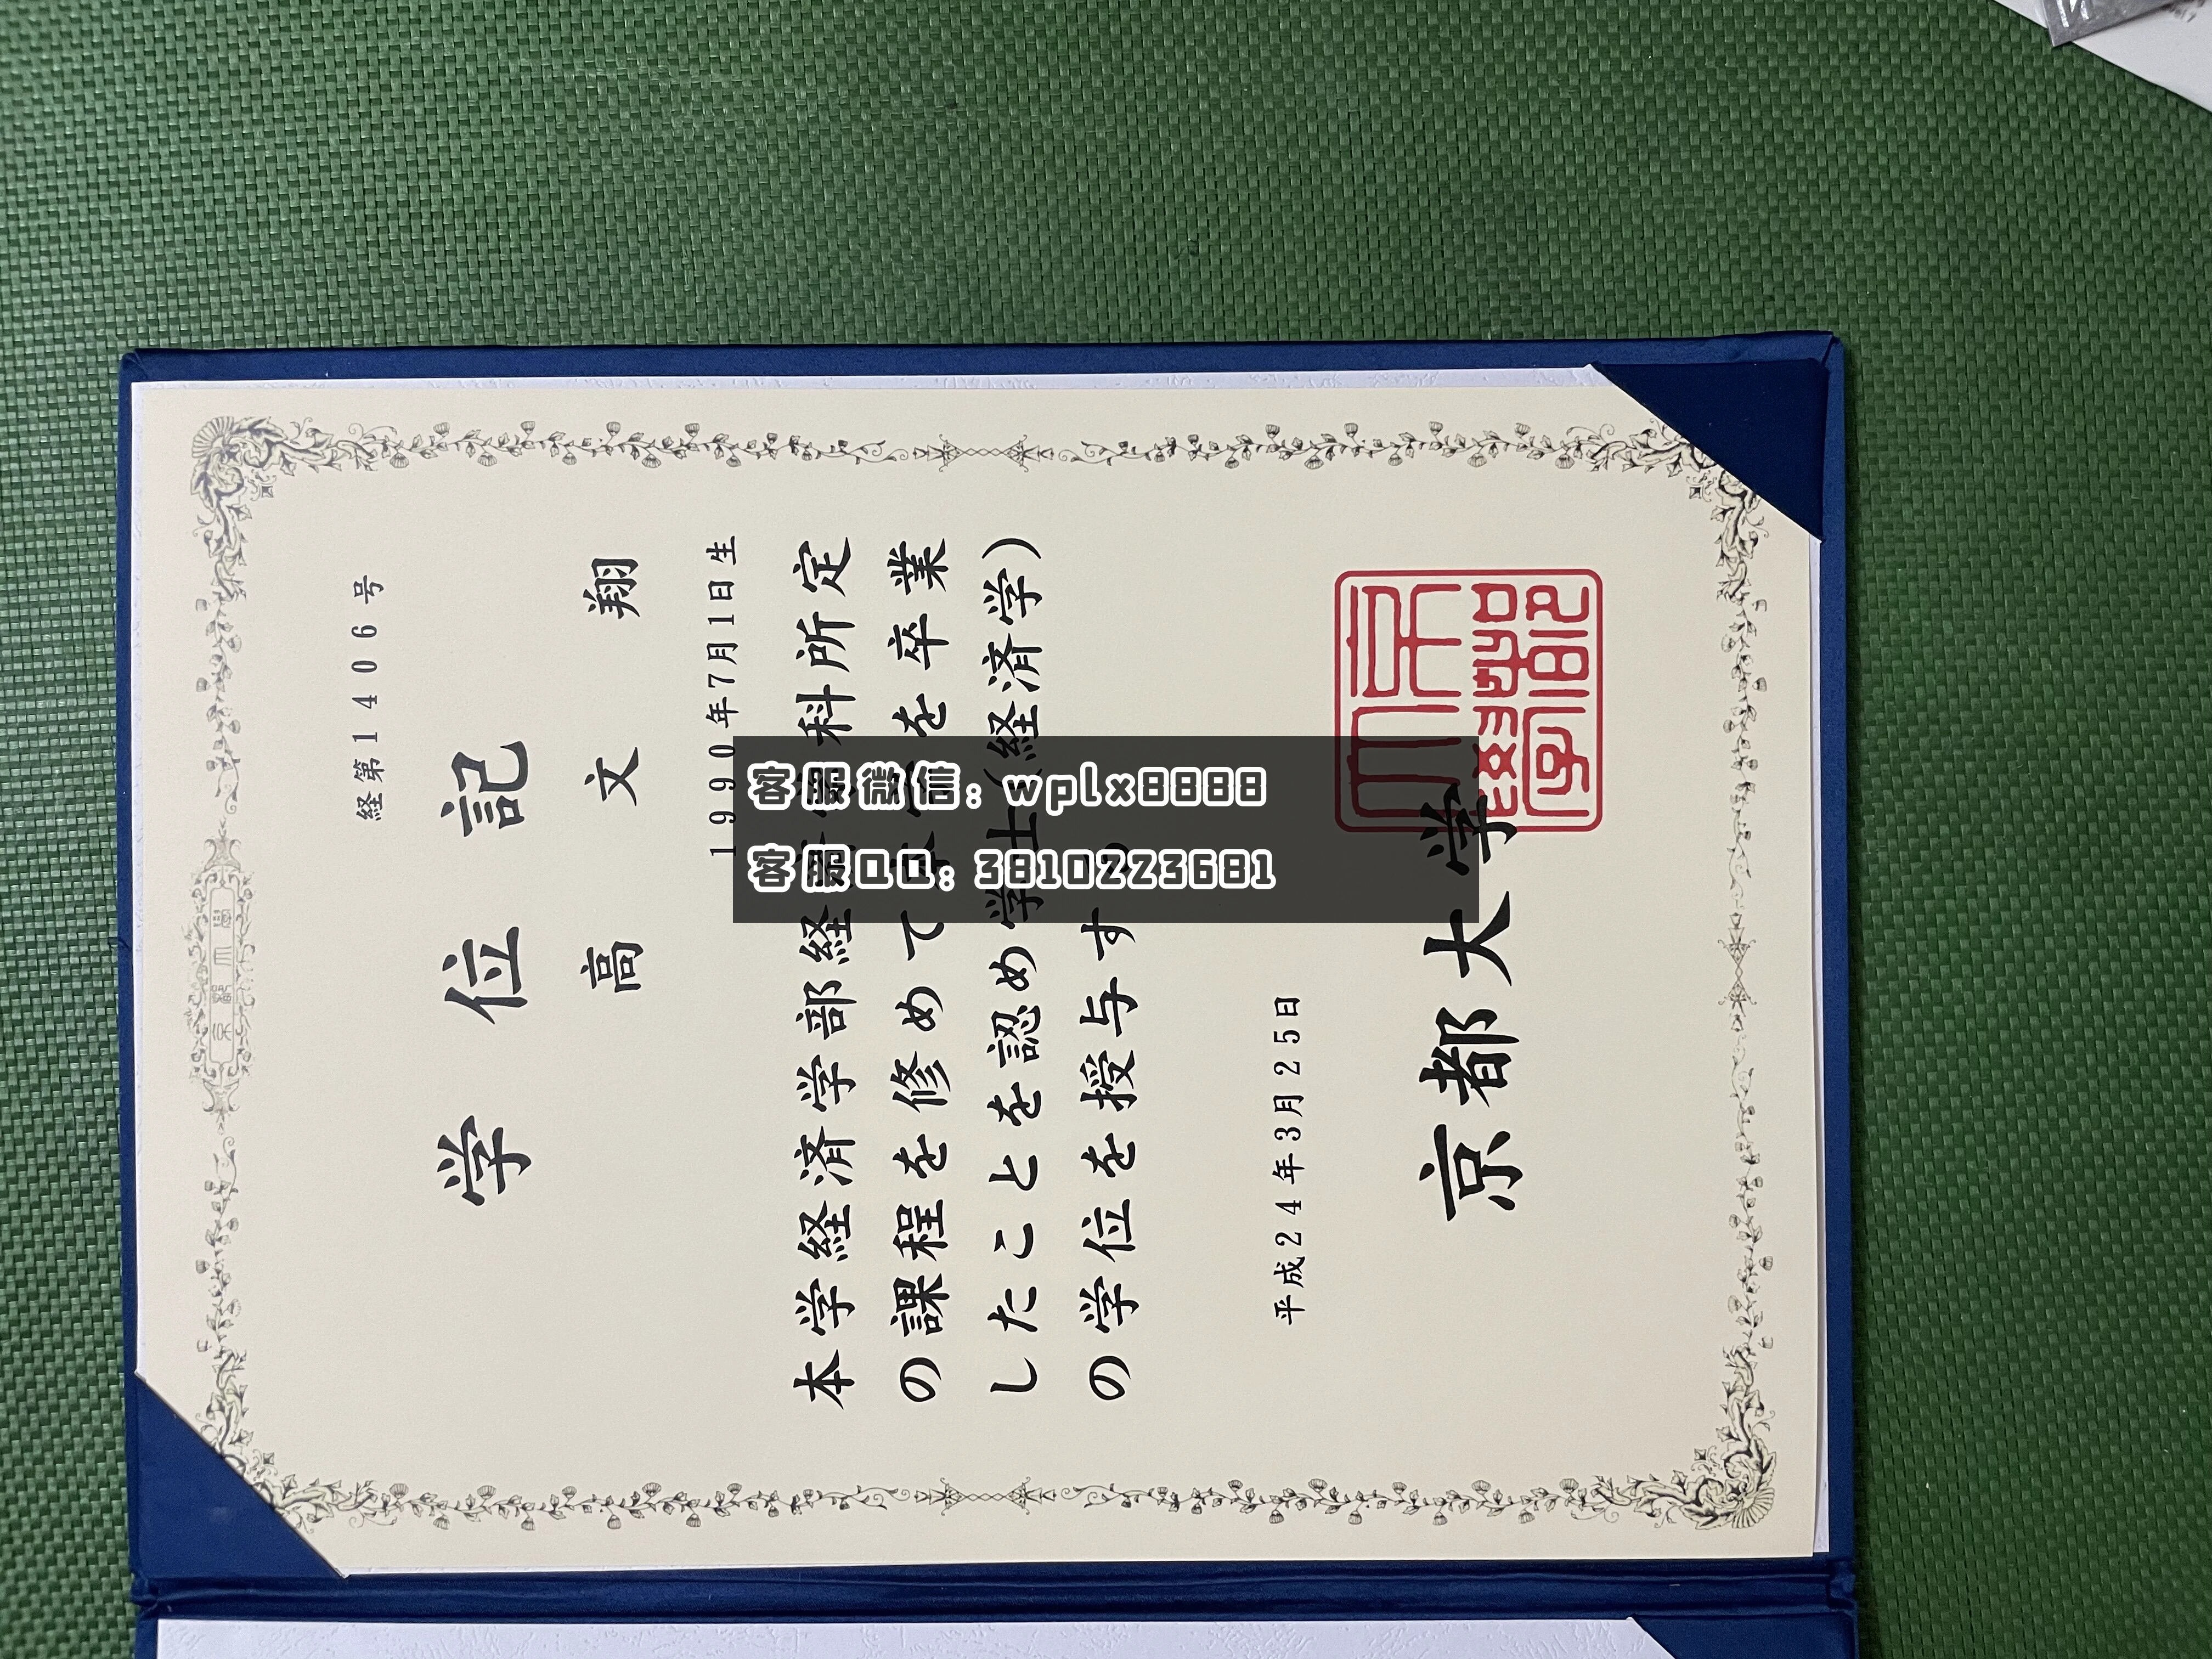 経第11406号
学位記
高文翔
1990年7月1日生
本学経済学部経済学科所定
の課程を修めて本学を卒業
したことを認め学士(経済学)
の学位を授与する
平成24年3月25日
京都大学
微信:wplx8888
QQ:3810223681